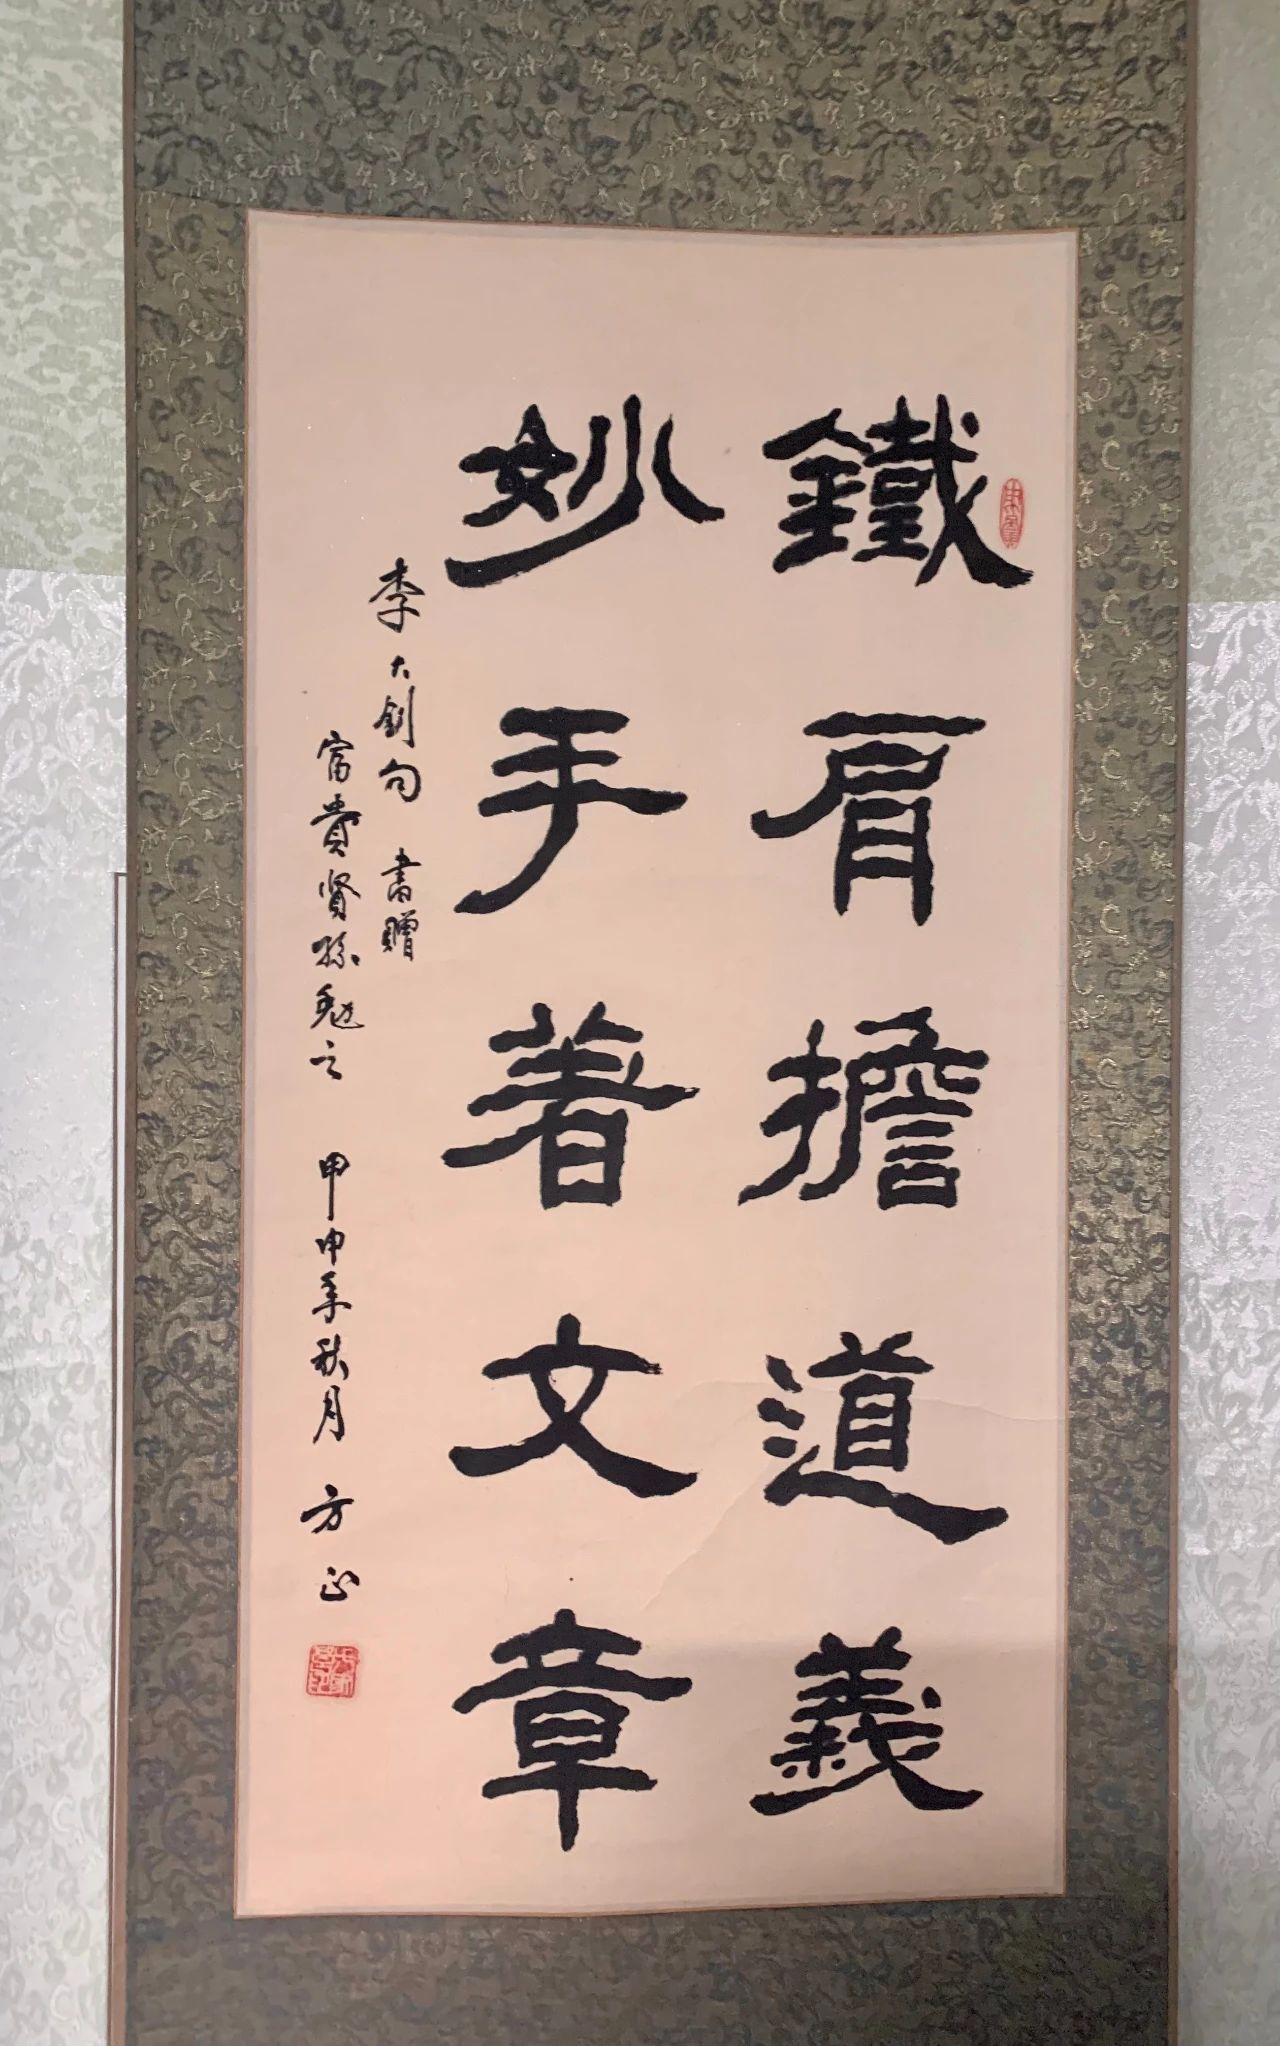 鐵肩擔道義
妙手著文章
李大釗句 書贈
富貴賢孫勉之 甲申年秋月 方正